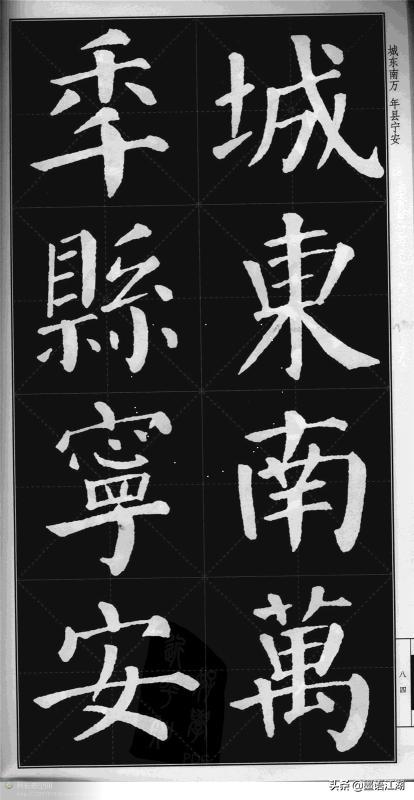 城東南萬
秊縣寧安
城东南万 年县宁安
八四
头条@墨语江湖